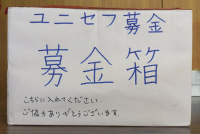 ユニセフ募金
募金箱
こちらに入れてください
ご協力ありがとうございます